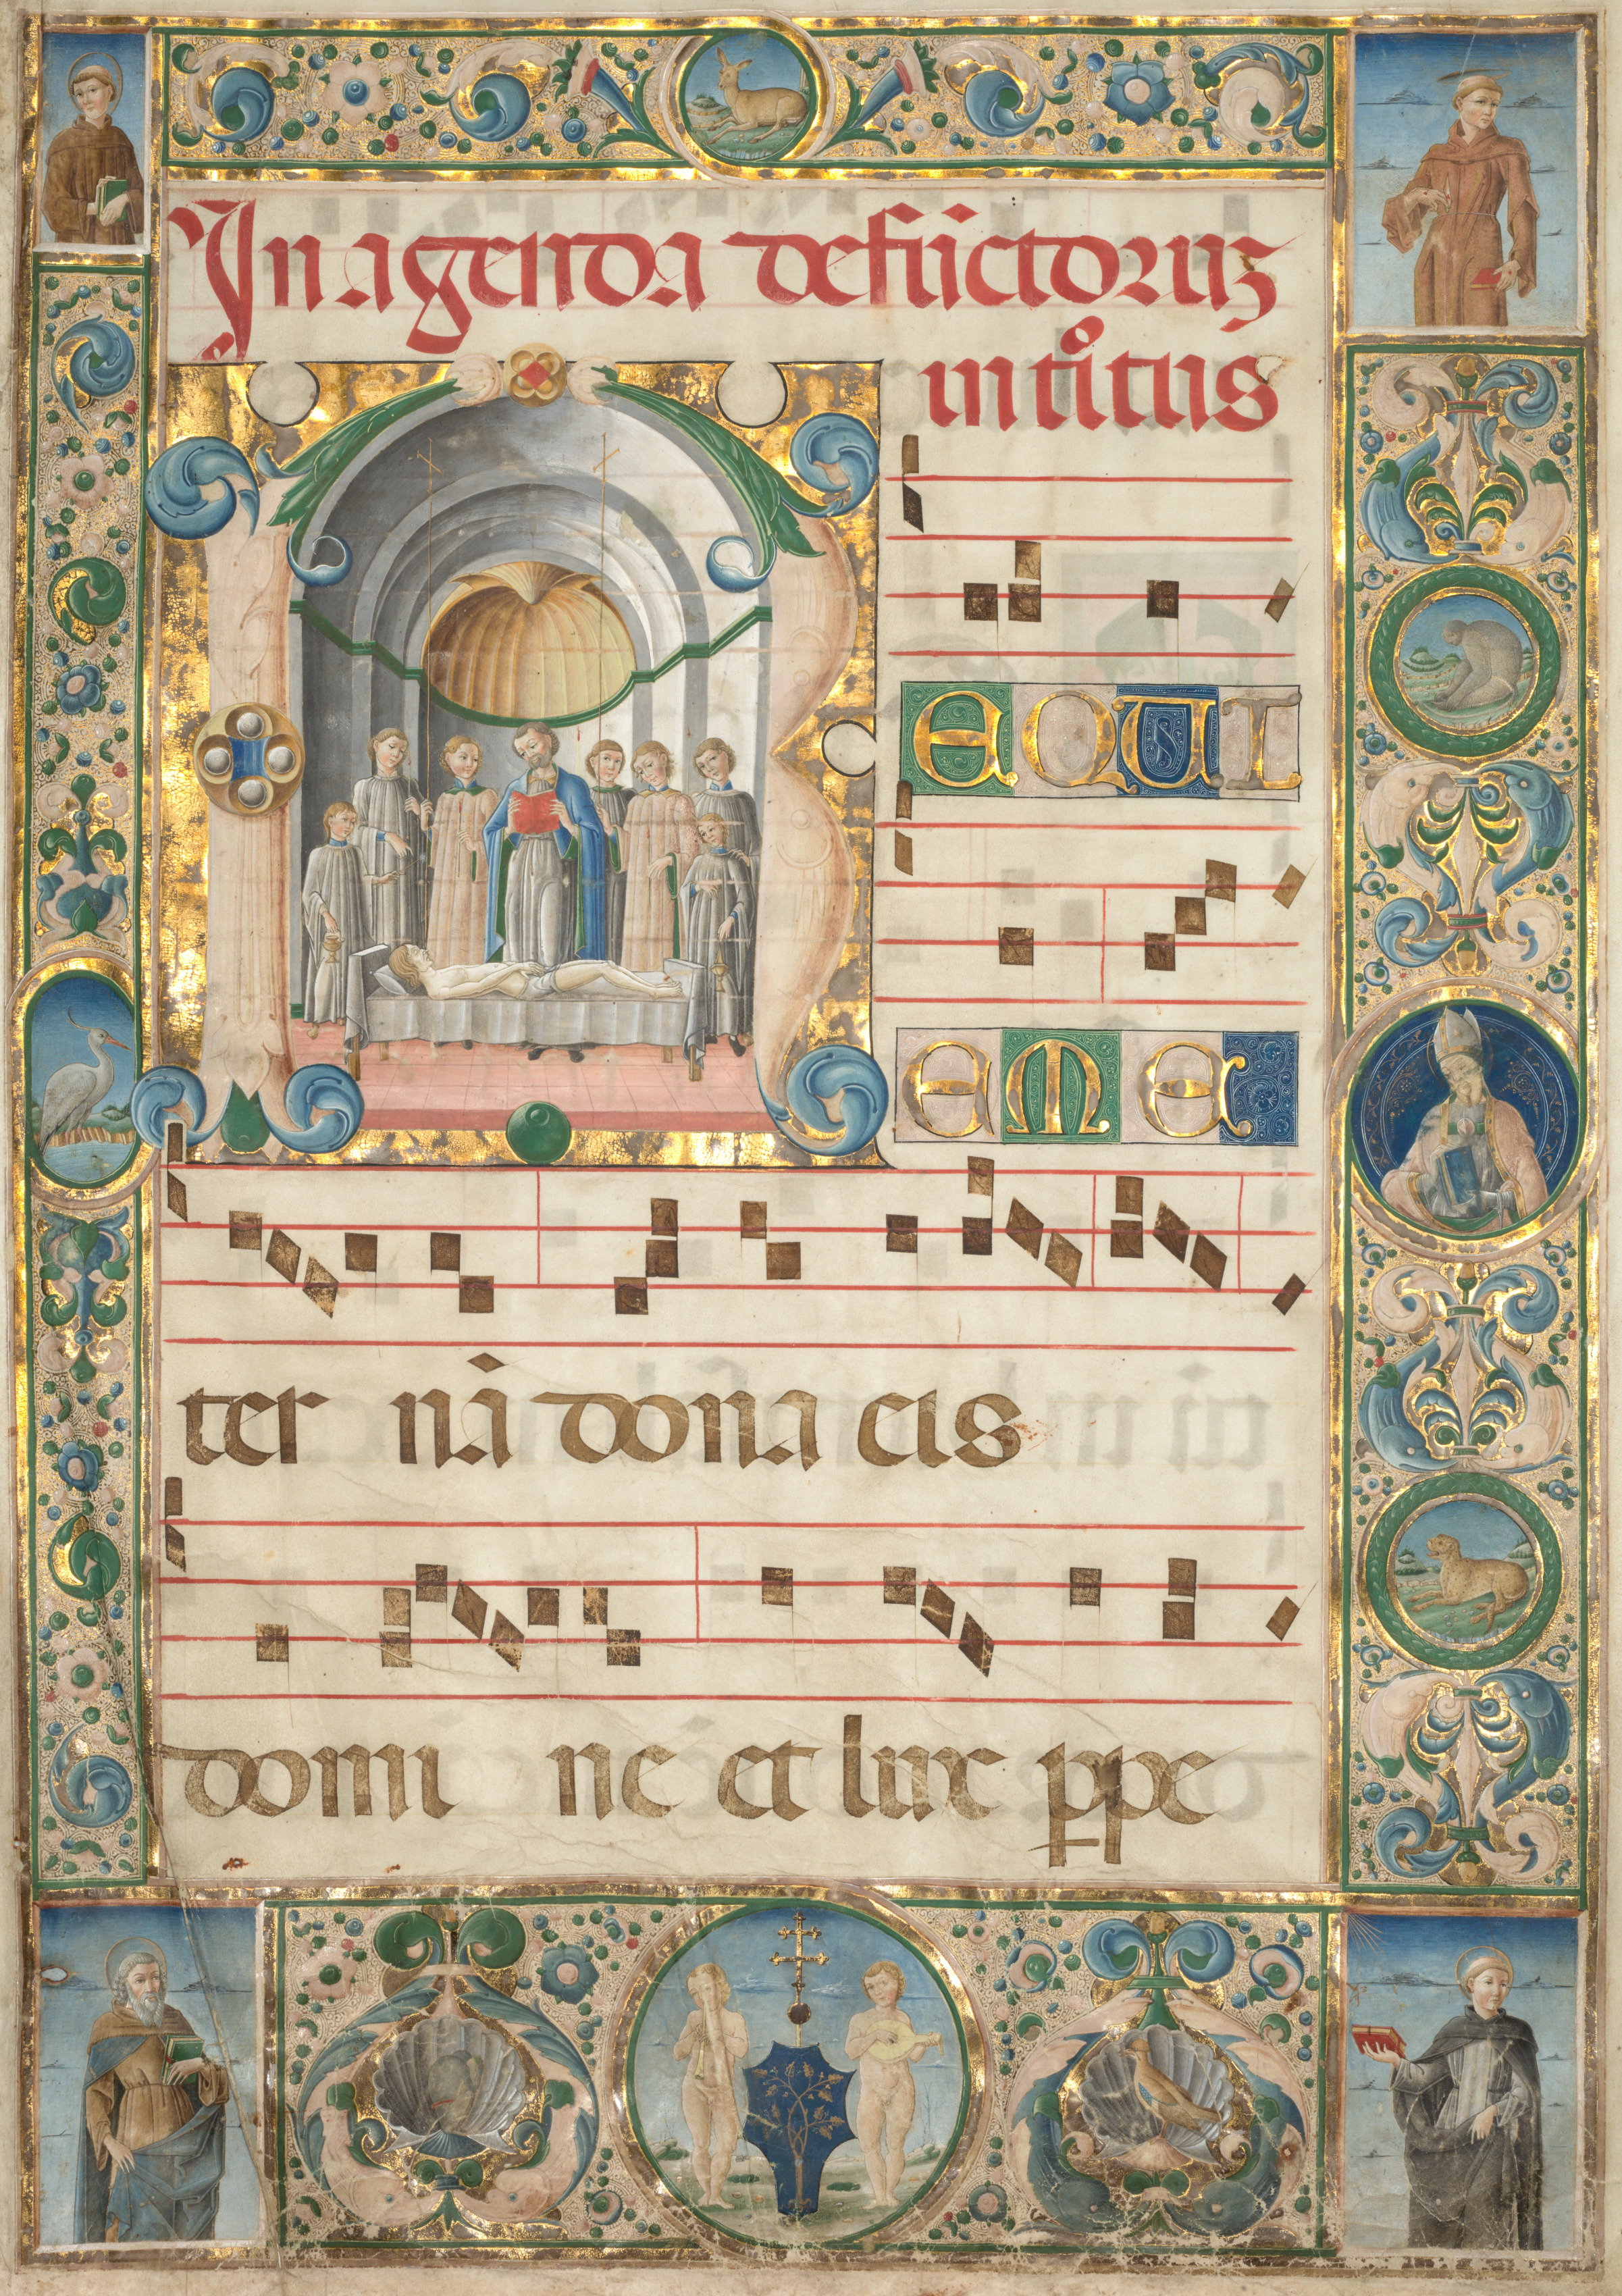 In agenda defūctoruz
introitus
REQUI
EM E
ter nā dona eis
domi ne et lux ppe